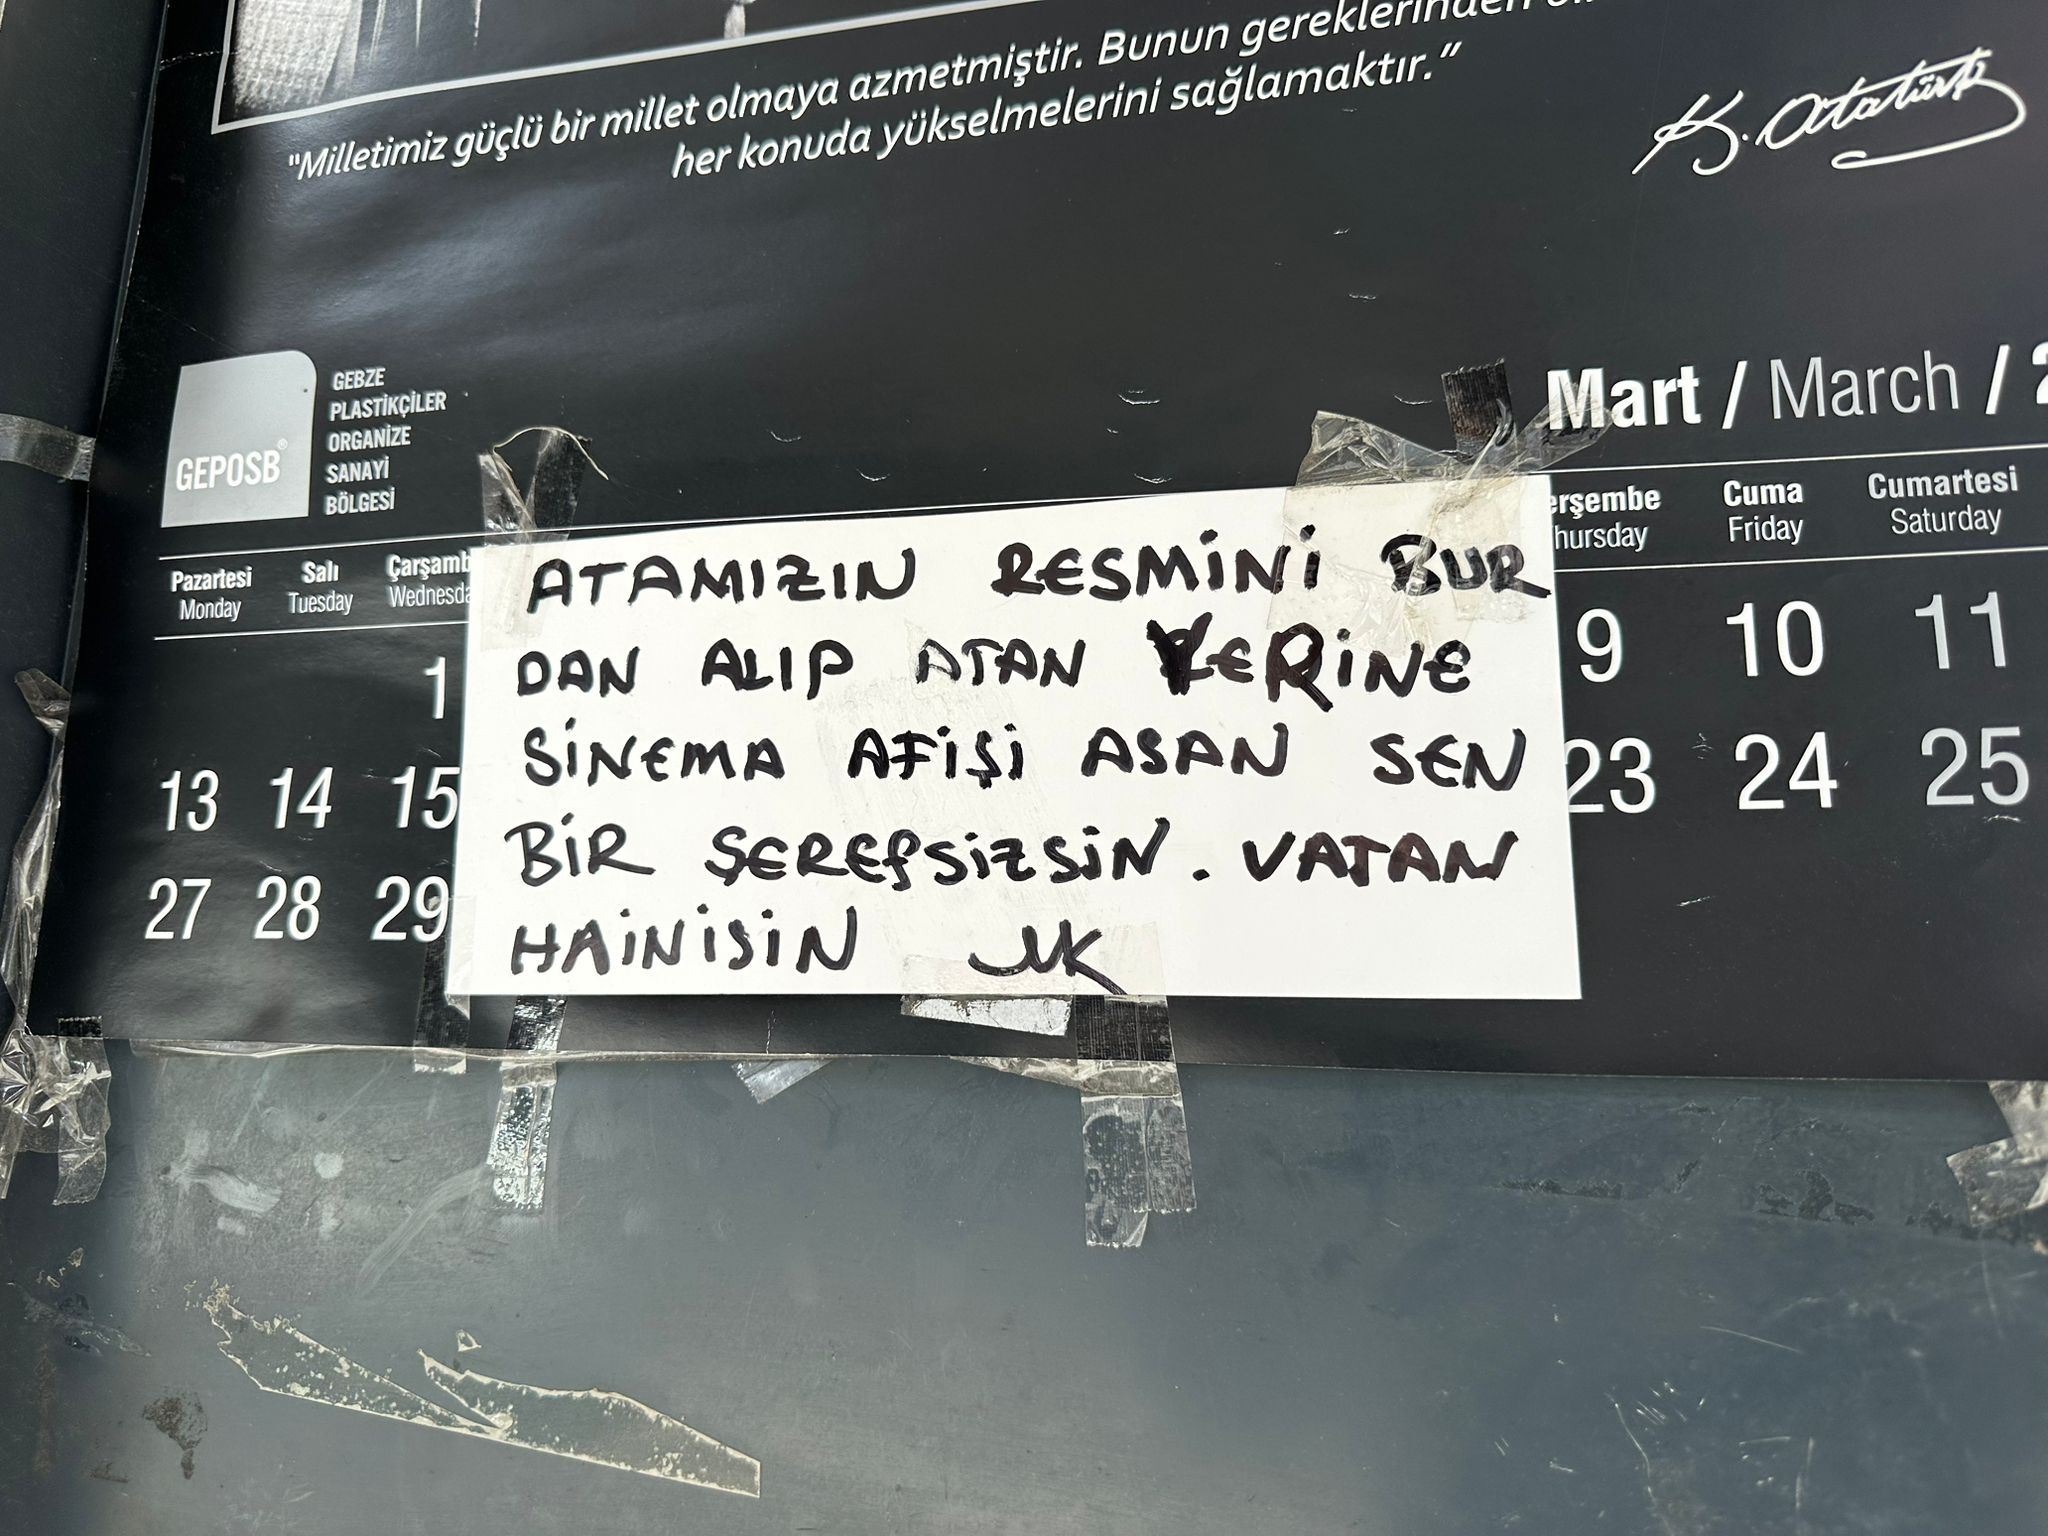 "Milletimiz güçlü bir millet olmaya azmetmiştir. Bunun gereklerinden
her konuda yükselmelerini sağlamaktır."
K. Atatürk
GEPOSB®
GEBZE
PLASTİKÇİLER
ORGANİZE
SANAYİ
BÖLGESİ
Mart / March / 2
Pazartesi Salı Çarşamb erşembe Cuma Cumartesi
Monday Tuesday Wednesda hursday Friday Saturday
1 9 10 11
13 14 15 23 24 25
27 28 29
ATAMIZIN RESMİNİ BUR
DAN ALIP ATAN YERİNE
SİNEMA AFİŞİ ASAN SEN
BİR ŞEREFSİZSİN. VATAN
HAİNİSİN